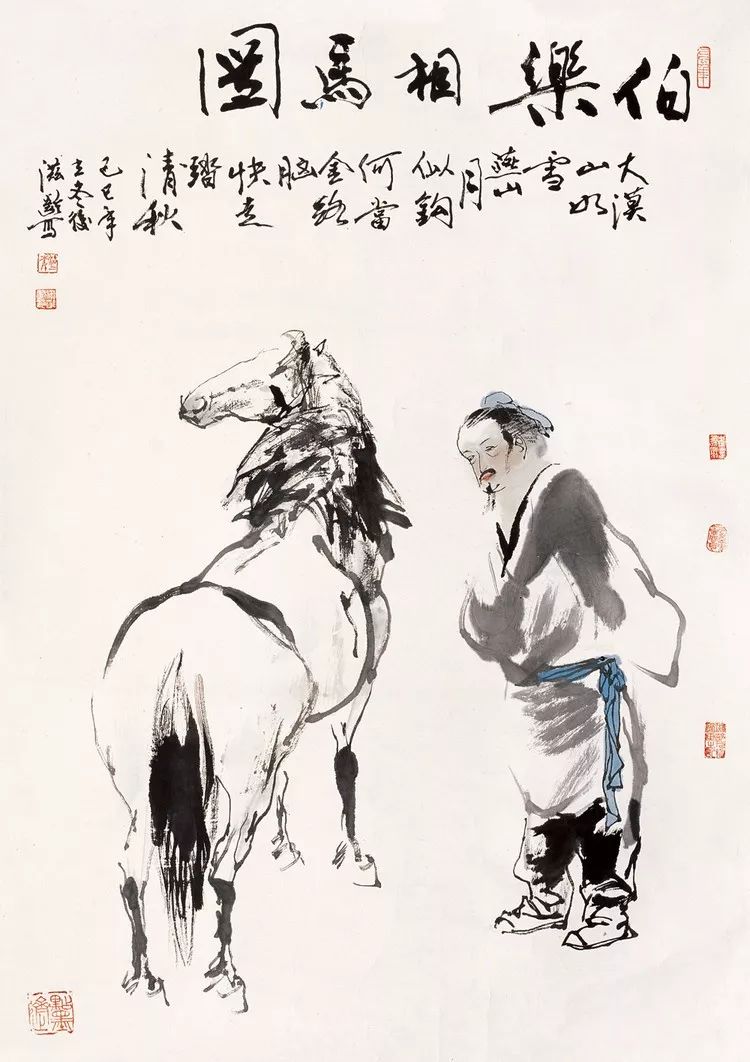 伯樂相馬圖
大漠
山如
雪
燕山
月
似鈎
何當
金絡
腦
快走
踏
清秋
己巳年
立冬後